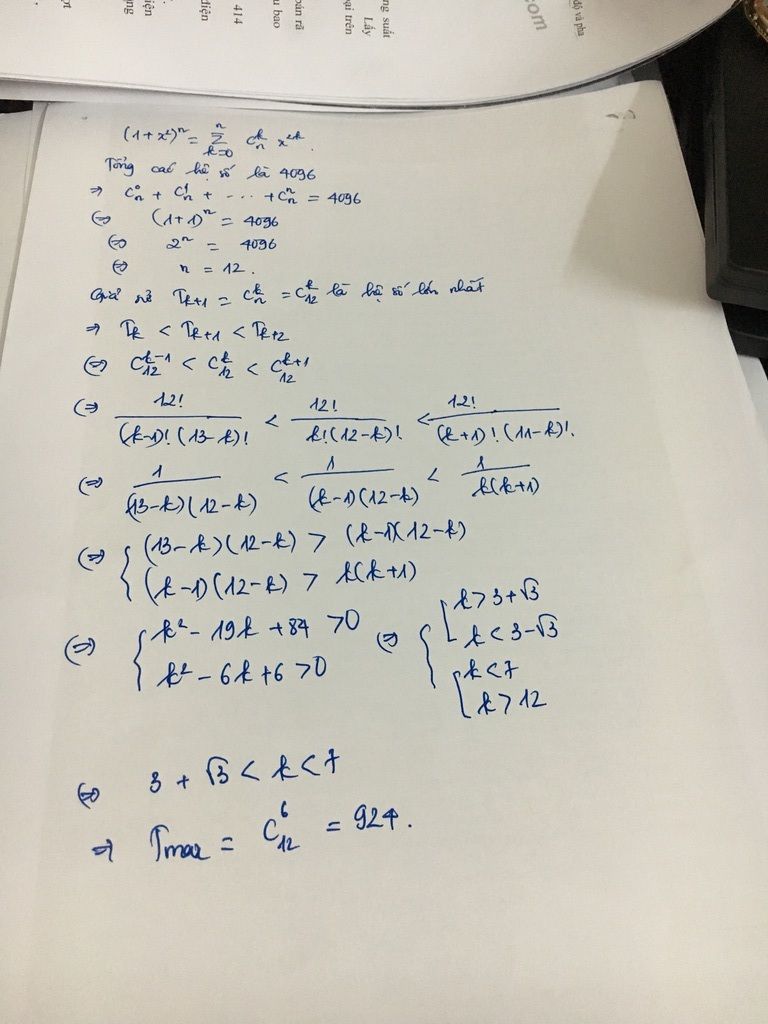 ng suất
Lấy
ại trên
oán rã
u bao
414
điện
iện
ụng
ợt
com
độ và pha
(1+x²)ⁿ = Σ_{k=0}^{n} C_n^k x^{2k}.
Tổng các hệ số là 4096
⇒ C_n^0 + C_n^1 + ... + C_n^n = 4096
⇔ (1+1)ⁿ = 4096
⇔ 2ⁿ = 4096
⇔ n = 12.
Giả sử T_{k+1} = C_n^k = C_{12}^k là hệ số lớn nhất
⇒ T_k < T_{k+1} < T_{k+2}
⇔ C_{12}^{k-1} < C_{12}^k < C_{12}^{k+1}
⇔ 12!/((k-1)!(13-k)!) < 12!/(k!(12-k)!) < 12!/((k+1)!(11-k)!).
⇔ 1/((13-k)(12-k)) < 1/((k-1)(12-k)) < 1/(k(k+1))
⇔ { (13-k)(12-k) > (k-1)(12-k)
(k-1)(12-k) > k(k+1)
⇔ { k² - 19k + 84 > 0
k² - 6k + 6 > 0
⇔ { [ k > 3+√3
k < 3-√3
[ k < 7
k > 12
⇔ 3 + √3 < k < 7
⇒ Tmax = C_{12}^6 = 924.